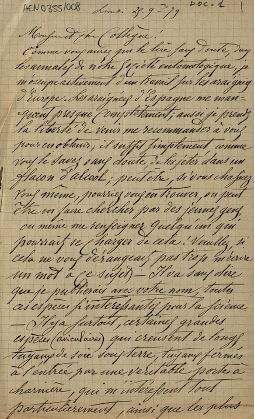 ACN0355/008
DOC. 1
Lundi 25-9-79
Monsieur et cher Collègue!
Comme vous aurez pu le lire sans doute, dans
les annales de notre Société entomologique, je
m'occupe activement d'un travail sur les araignées
d'Europe. Les araignées d'Espagne me man-
quent presque complètement, aussi je prends
la liberté de venir me recommander à vous
pour en obtenir, il suffit simplement comme
vous le savez sans doute de les jeter dans un
flacon d'alcool, peut être, si vous chassez
vous même, pourriez vous en trouver, ou peut
être en faire chercher par des jeunes gens,
ou même me renseigner quelqu'un qui
pourrait se charger de cela. Veuillez, si
cela ne vous dérangeait pas trop m'écrire
un mot à ce sujet — Il va sans dire
que je publierais avec votre nom, toutes
ces espèces si intéressantes pour la science
— Il y a surtout, certaines grandes
espèces (aviculaires) qui creusent de longs
tuyaux de soie sous terre, tuyaux fermés
à l'entrée par une véritable porte à
charnière, qui m'intéressent tout
particulièrement, ainsi que les plus